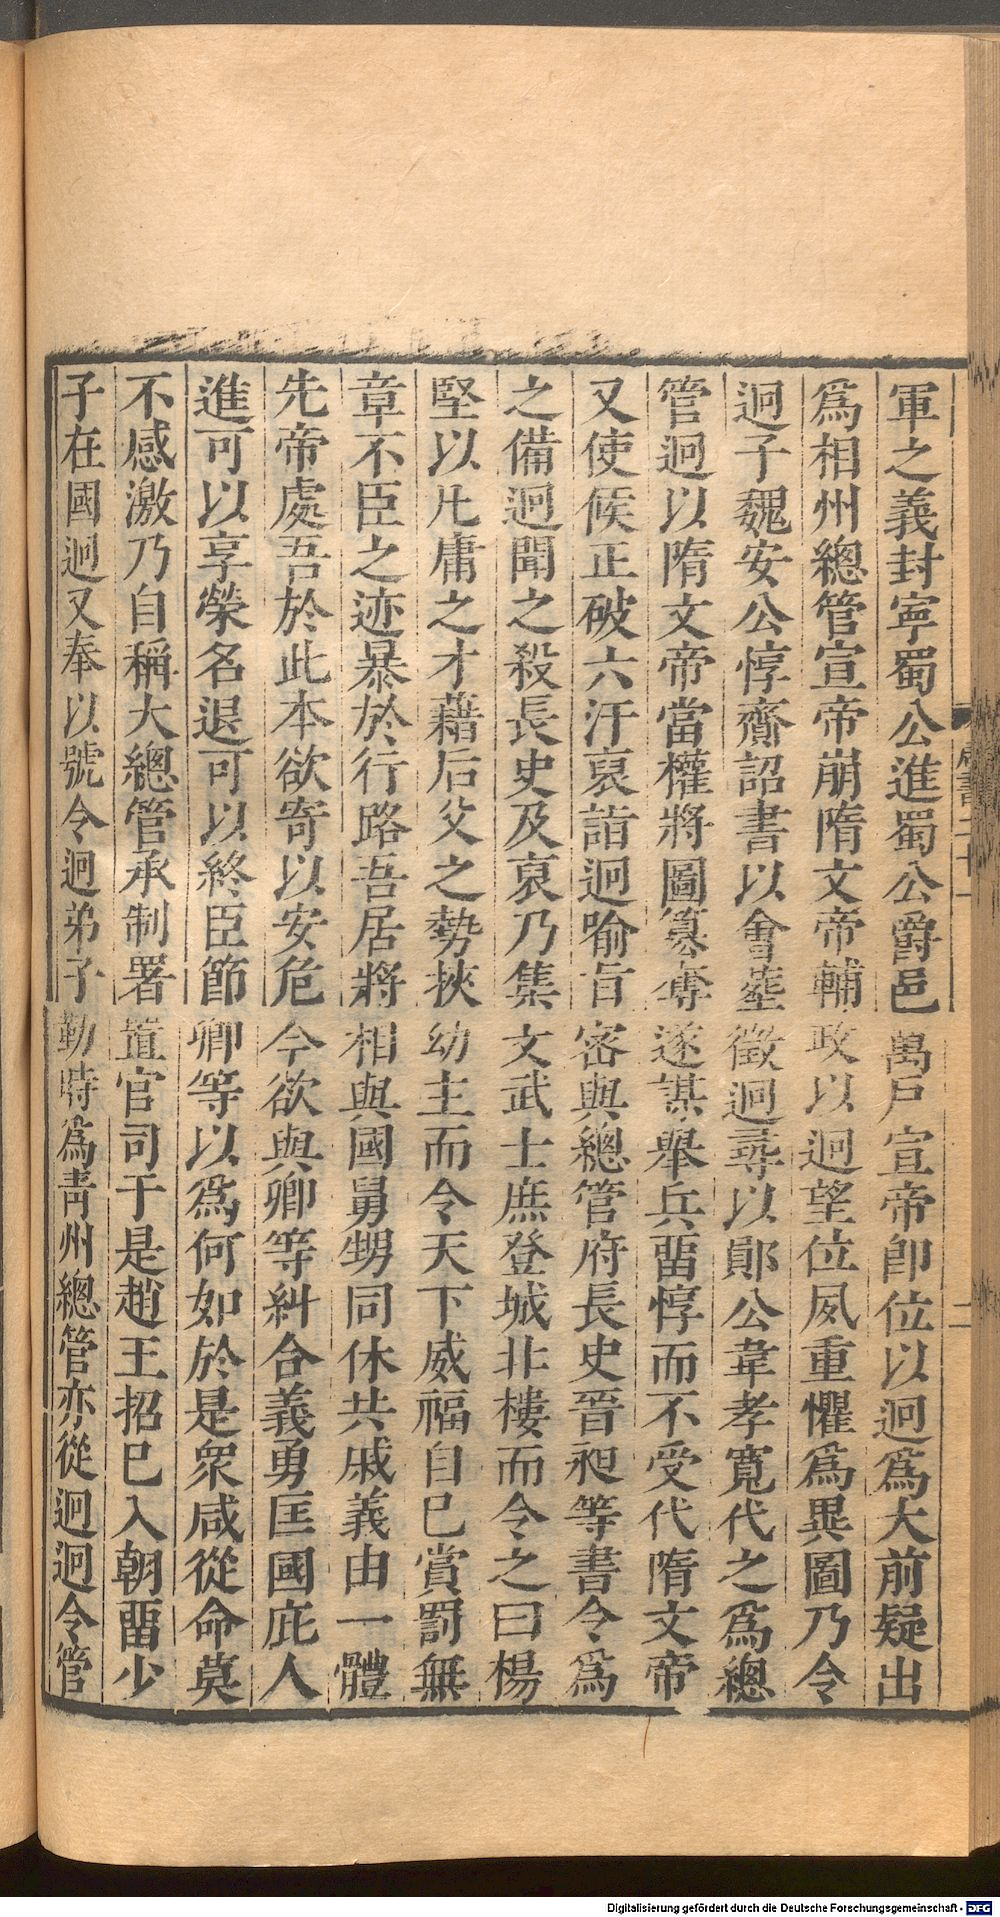 軍之義封寧蜀公進蜀公爵邑萬戸宣帝卽位以迥爲大前疑出
爲相州總管宣帝崩隋文帝輔政以迥望位夙重懼爲異圖乃令
迥子魏安公惇齎詔書以會塟徵迥尋以鄖公韋孝寬代之爲總
管迥以隋文帝當權將圖簒奪遂謀舉兵畱惇而不受代隋文帝
又使候正破六汗裒詣迥喻旨密與總管府長史晉昶等書令爲
之備迥聞之殺長史及裒乃集文武士庶登城北樓而令之曰楊
堅以凡庸之才藉后父之勢挾幼主而令天下威福自己賞罰無
章不臣之迹暴於行路吾居將相與國舅甥同休共戚義由一體
先帝處吾於此本欲寄以安危今欲與卿等糾合義勇匡國庇人
進可以享榮名退可以終臣節卿等以爲何如於是衆咸從命莫
不感激乃自稱大總管承制署置官司于是趙王招已入朝畱少
子在國迥又奉以號令迥弟子勤時爲青州總管亦從迥迥令管
周書二十一
二
Digitalisierung gefördert durch die Deutsche Forschungsgemeinschaft - DFG